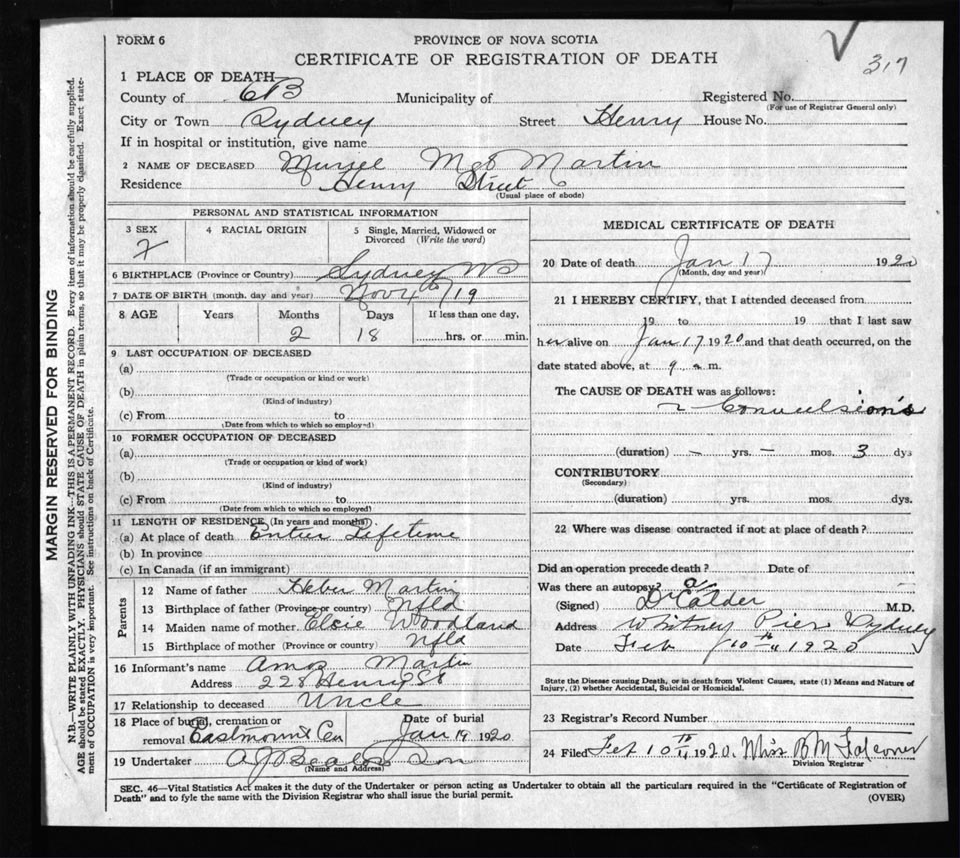 317
FORM 6
PROVINCE OF NOVA SCOTIA
CERTIFICATE OF REGISTRATION OF DEATH
1 PLACE OF DEATH
County of CB Municipality of Registered No.
(For use of Registrar General only)
City or Town Sydney Street Henry House No.
If in hospital or institution, give name
2 NAME OF DECEASED Martin
Residence Henry Street
(Usual place of abode)
PERSONAL AND STATISTICAL INFORMATION
3 SEX F
4 RACIAL ORIGIN
5 Single, Married, Widowed or Divorced (Write the word)
6 BIRTHPLACE (Province or Country) Sydney
7 DATE OF BIRTH (month, day and year) Nov /19
8 AGE Years Months Days If less than one day,
2 18 hrs. or min.
9 LAST OCCUPATION OF DECEASED
(a)
(Trade or occupation or kind or work)
(b)
(Kind of industry)
(c) From to
(Date from which to which so employed)
10 FORMER OCCUPATION OF DECEASED
(a)
(Trade or occupation or kind of work)
(b)
(Kind of industry)
(c) From to
(Date from which to which so employed)
11 LENGTH OF RESIDENCE (In years and months)
(a) At place of death Entire Lifetime
(b) In province
(c) In Canada (if an immigrant)
Parents
12 Name of father Heber Martin
13 Birthplace of father (Province or country) Nfld
14 Maiden name of mother Elsie Woodland
15 Birthplace of mother (Province or country) Nfld
16 Informant's name Amos Martin
Address 228 Henry St
17 Relationship to deceased Uncle
18 Place of burial, cremation or removal Eastmount Cem
Date of burial Jan 19 1920
19 Undertaker A J Beaton Son
(Name and Address)
MEDICAL CERTIFICATE OF DEATH
20 Date of death Jan 17 1920
(Month, day and year)
21 I HEREBY CERTIFY, that I attended deceased from
19 to 19 that I last saw
her alive on Jan 17 1920 and that death occurred, on the
date stated above, at 9 a m.
The CAUSE OF DEATH was as follows:
Convulsions
(duration) — yrs. — mos. 3 dys
CONTRIBUTORY
(Secondary)
(duration) yrs. mos. dys.
22 Where was disease contracted if not at place of death?
Did an operation precede death? Date of
Was there an autopsy?
(Signed) Dr Calder M.D.
Address Whitney Pier Sydney
Date Feb 10th 1920
State the Disease causing Death, or in death from Violent Causes, state (1) Means and Nature of
Injury, (2) whether Accidental, Suicidal or Homicidal.
23 Registrar's Record Number
24 Filed Feb 10th, 1920. Miss B M Falconer
Division Registrar
SEC. 46—Vital Statistics Act makes it the duty of the Undertaker or person acting as Undertaker to obtain all the particulars required in the "Certificate of Registration of
Death" and to fyle the same with the Division Registrar who shall issue the burial permit.
(OVER)
MARGIN RESERVED FOR BINDING
N.B.—WRITE PLAINLY WITH UNFADING INK—THIS IS A PERMANENT RECORD. Every item of information should be carefully supplied.
AGE should be stated EXACTLY. PHYSICIANS should STATE CAUSE OF DEATH in plain terms, so that it may be properly classified. Exact state-
ment of OCCUPATION is very important. See instructions on back of Certificate.